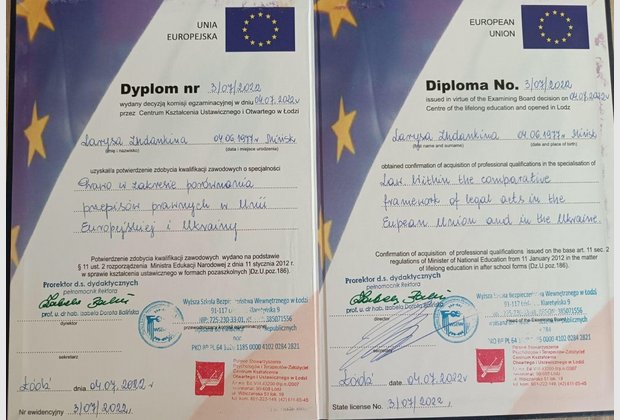 UNIA
EUROPEJSKA
Dyplom nr 3/07/2022
wydany decyzją komisji egzaminacyjnej w dniu 04.07.2022 r
przez Centrum Kształcenia Ustawicznego i Otwartego w Łodzi
Larysa Ludankina 04.06.1977 r. Mińsk
(imię i nazwisko) (data i miejsce urodzenia)
uzyskał/a potwierdzenie zdobycia kwalifikacji zawodowych o specjalności
Prawo w zakresie porównania
przepisów prawnych w Unii
Europejskiej i Ukrainy
Potwierdzenie zdobycia kwalifikacji zawodowych wydano na podstawie
§ 11 ust. 2 rozporządzenia Ministra Edukacji Narodowej z dnia 11 stycznia 2012 r.
w sprawie kształcenia ustawicznego w formach pozaszkolnych (Dz.U.poz.186).
Prorektor d.s. dydaktycznych
pełnomocnik Rektora
prof. u. dr hab. Izabela Dorota Balińska
dyrektor
Wyższa Szkoła Bezpieczeństwa Wewnętrznego w Łodzi
91-117
NIP: 725-230-33-00 385071556
PKO BP PL 64 1020 0000 4102 0284 2821
sekretarz
Polskie Stowarzyszenie
Psychologów i Terapeutów-Założyciel
Centrum Kształcenia
Otwartego i Ustawicznego w Łodzi
Łódź dnia 04.07.2022 r
Nr ewidencyjny 3/07/2022,
EUROPEAN
UNION
Diploma No. 3/07/2022
issued in virtue of the Examining Board decision on 04.07.2022 r
Centre of the lifelong education and opened in Lodz
Larysa Ludankina 04.06.1977 r. Mińsk
(first name and surname) (date and place of birth)
obtained confirmation of acquisition of professional qualifications in the specialisation of
Law. Within the comparative
framework of legal acts in the
Eupean Union and in the Ukraine.
Confirmation of acquisition of professional qualifications issued on the base art. 11 sec. 2
regulations of Minister of National Education from 11 January 2012 in the matter
of lifelong education in after school forms (Dz.U.poz.186).
Prorektor d.s. dydaktycznych
pełnomocnik Rektora
prof. u. dr hab. Izabela Dorota Balińska
director
Wyższa Szkoła Bezpieczeństwa Wewnętrznego w Łodzi
91-117
NIP: 385071556
Head of the Examining Board
PKO BP PL 64 0000 4102 0284 2821
secretary
Polskie Stowarzyszenie
Psychologów i Terapeutów-Założyciel
Centrum Kształcenia
Otwartego i Ustawicznego w Łodzi
Łódź date 04.07.2022 r
State license No. 3/07/2022,